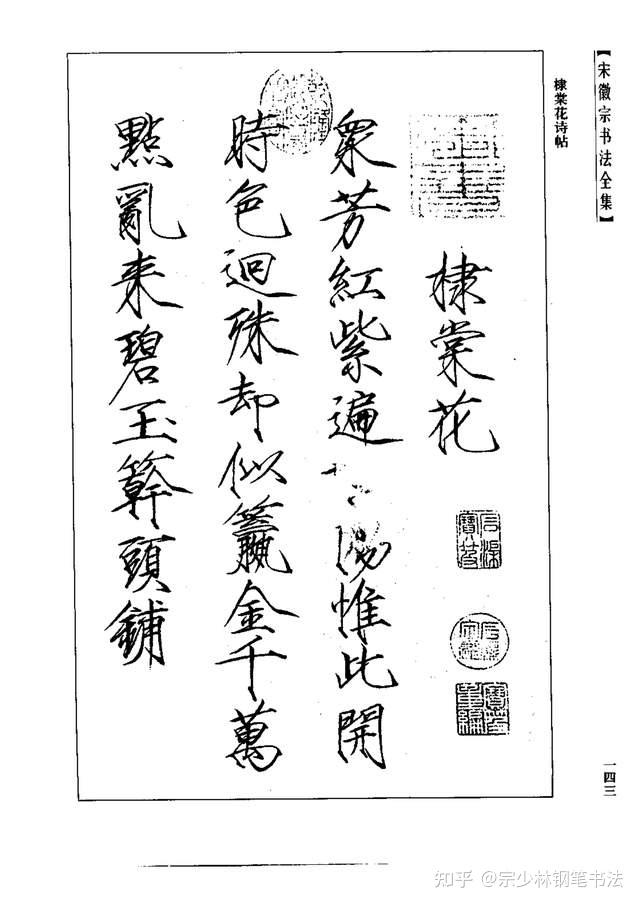 【宋徽宗书法全集】
棣棠花诗帖
棣棠花
衆芳紅紫遍
惟此開
時色迥殊却似籯金千萬
點亂来碧玉簳頭鋪
一四三
知乎 @宗少林钢笔书法